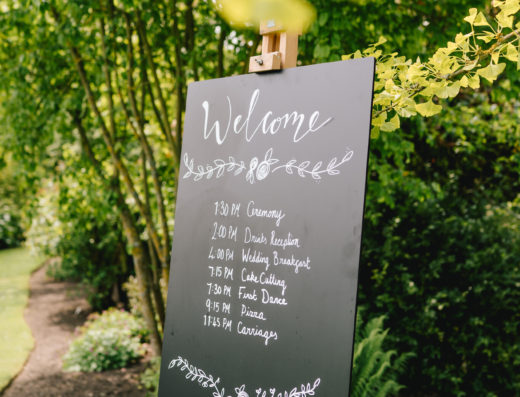 Welcome
1:30 PM Ceremony
2:00 PM Drinks Reception
4:00 PM Wedding Breakfast
7:15 PM Cake Cutting
7:30 PM First Dance
9:15 PM Pizza
11:45 PM Carriages